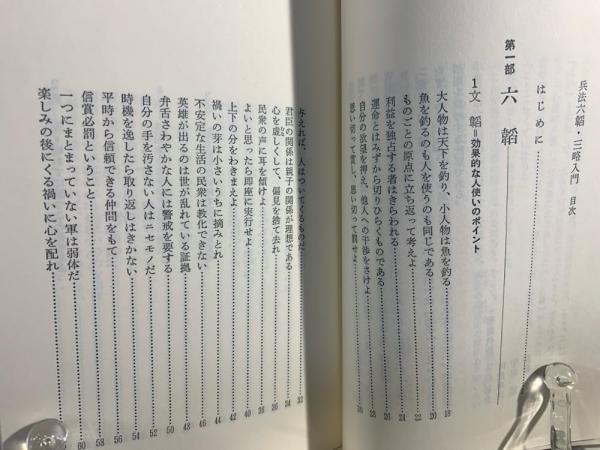 兵法六韜・三略入門　目次
はじめに……………
第一部　六　韜
1 文　韜＝効果的な人使いのポイント
大人物は天下を釣り、小人物は魚を釣る……………18
魚を釣るのも人を使うのも同じである……………20
ものごとの原点に立ち返って考えよ……………22
利益を独占する者はきらわれる……………24
運命とはみずから切りひらくものである……………26
自分の欲望を押え、他人への干渉をさけよ……………28
思い切って賞し、思い切って罰せよ……………30
与えれば、人はついてくるものだ……………32
君臣の関係は親子の関係が理想である……………34
心を虚しくして、偏見を捨て去れ……………36
民衆の声に耳を傾けよ……………38
よいと思ったら即座に実行せよ……………40
上下の分をわきまえよ……………42
禍いの芽は小さいうちに摘みとれ……………44
不安定な生活の民衆は教化できない……………46
英雄が出るのは世が乱れている証拠……………48
弁舌さわやかな人には警戒を要する……………50
自分の手を汚さない人はニセモノだ……………52
時機を逸したら取り返しはきかない……………54
平時から信頼できる仲間をもて……………56
信賞必罰ということ……………58
一つにまとまっていない軍は弱体だ……………60
楽しみの後にくる禍いに心を配れ……………